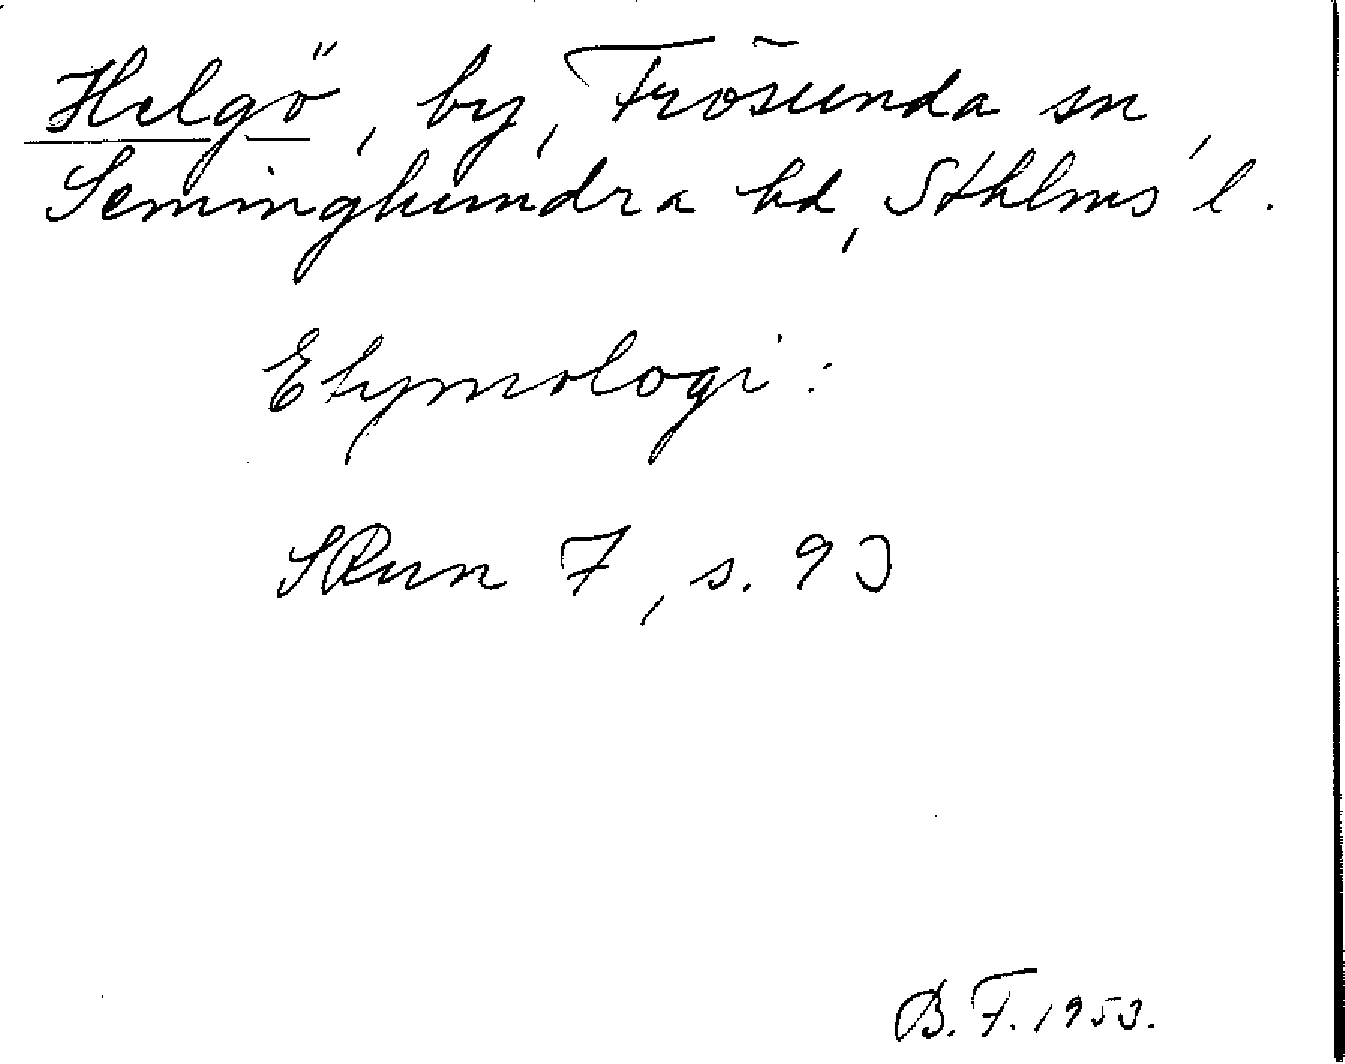 Helgö, by, Frösunda sn,
Seminghundra hd, Sthlms l.
Etymologi:
SRun 7, s. 93
B. F. 1953.